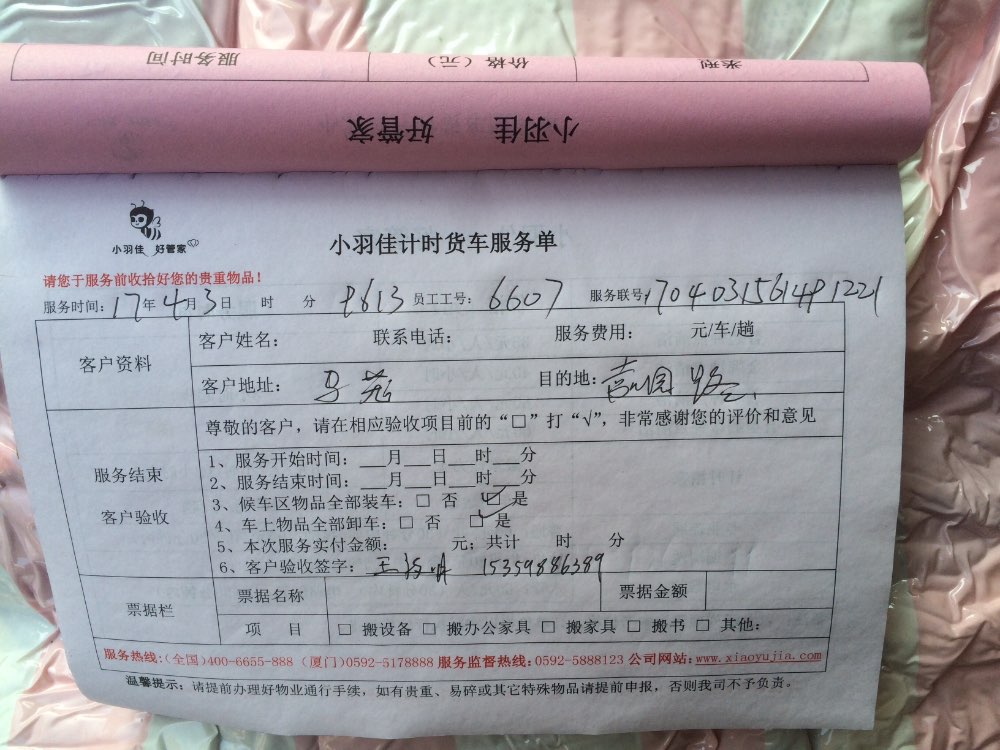 服务时间 价格（元） 类型
小羽佳 好管家
小羽佳 好管家
小羽佳计时货车服务单
请您于服务前收拾好您的贵重物品！
服务时间：17年4月3日 时 分 员工工号：6607 服务联号：
客户资料
客户姓名： 联系电话： 服务费用： 元/车/趟
客户地址： 目的地：
尊敬的客户，请在相应验收项目前的“□”打“√”，非常感谢您的评价和意见
服务结束
客户验收
1、服务开始时间：___月___日___时___分
2、服务结束时间：___月___日___时___分
3、候车区物品全部装车：□ 否 □ 是
4、车上物品全部卸车：□ 否 □ 是
5、本次服务实付金额： 元；共计 时 分
6、客户验收签字： 15359886389
票据栏
票据名称 票据金额
项 目 □ 搬设备 □ 搬办公家具 □ 搬家具 □ 搬书 □ 其他：
服务热线：(全国)400-6655-888 (厦门)0592-5178888 服务监督热线：0592-5888123 公司网站：www.xiaoyujia.com
温馨提示：请提前办理好物业通行手续，如有贵重、易碎或其它特殊物品请提前申报，否则我司不予负责。